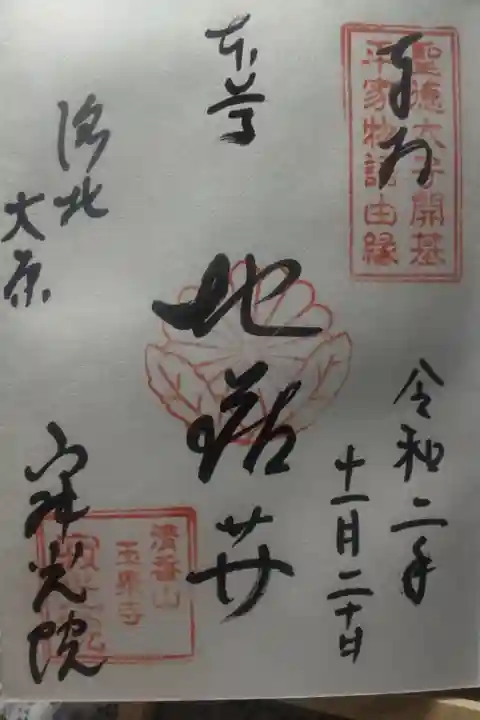 奉拝
聖徳太子開基
平家物語由縁
令和二年
十一月二十日
本尊
地蔵䒑
洛北
大原
寂光院
清香山
玉泉寺
寂光院